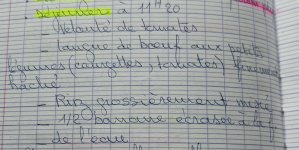 - Déjeuner à 11H20
- Velouté de tomates
- Langue de boeuf aux petits
légumes (courgettes, tomates) finement
haché
- Riz grossièrement mixé
- 1/2 banane écrasée à la f
- de l'eau